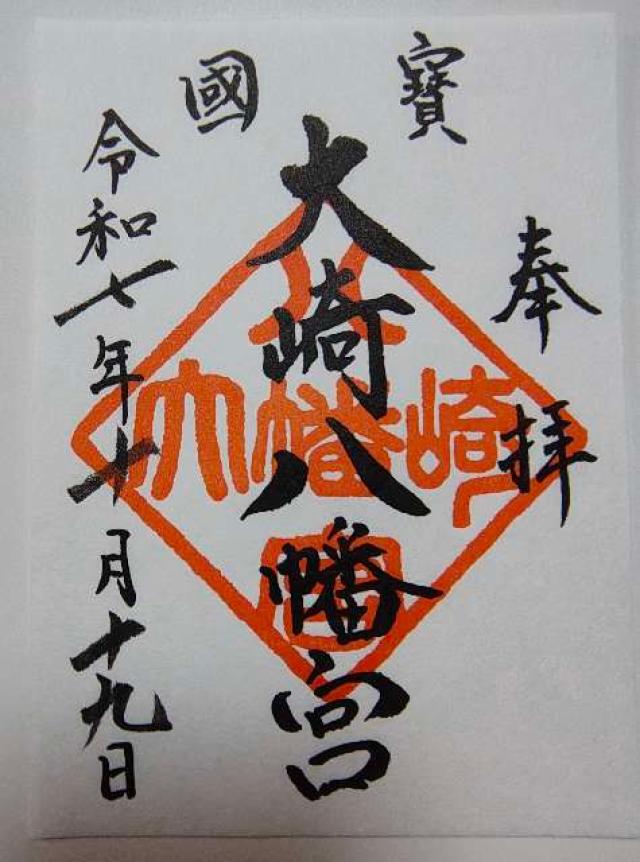 奉拝
國寳
大崎八幡宮
令和七年十月十九日
大崎八幡宮